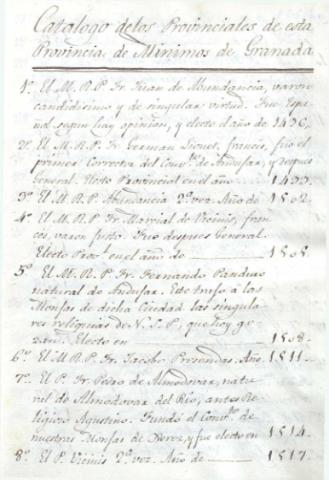 Catalogo de los Provinciales de esta
Provincia de Minimos de Granada
1º. El M. R. P. Fr. Juan de Abundancia, varon
candidisimo y de singular virtud. Fue Espa-
ñol segun hay opinion, y electo el año de 1496,
2º. El M. R. P. Fr. German Lionet, frances, fue el
primer Corrector del Convto. de Andujar, y despues
General. Electo Provincial en el año 1499.
3º El M. R. P. Abundancia 2ª vez. Año de 1502.
4º. El M. R. P. Fr. Marcial de Vicinis, fran-
ces, varon justo. Fue despues General.
Electo Prov. en el año de 1505.
5º El M. R. P. Fr. Fernando Panduro
natural de Andujar. Este trajo a las
Monjas de dicha Ciudad las singula-
res reliquias de N. S. P. que hoy go-
zan. Electo en 1508.
6º El M. R. P. Fr. Jacobo Año. 1511.
7º. El P. Fr. Pedro de Almodovar, natu-
ral de Almodovar del Rio, antes Re-
ligioso Agustino. Fundó el Convto. de
nuestras Monjas de Xerez, y fue electo en 1514.
8º. El P. Vicinis 2ª vez. Año de 1517.